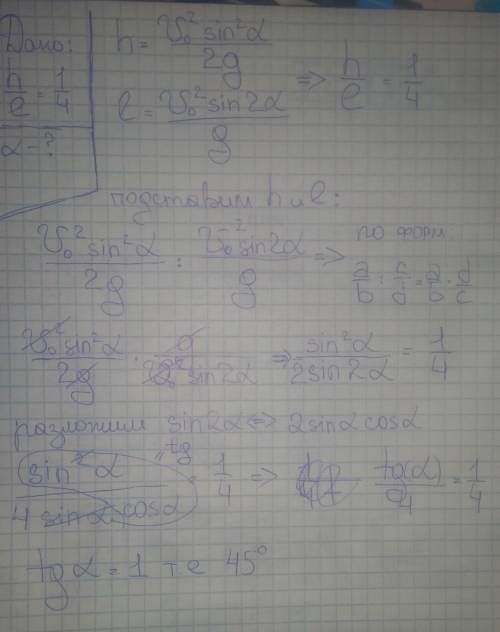 Дано:
h/l = 1/4
α - ?
h = υ₀² sin²α / 2g
l = υ₀² sin2α / g
=> h/l = 1/4
подставим h и l:
υ₀² sin²α / 2g : υ₀² sin2α / g =>
по форм
a/b : c/d = a/b · d/c
υ₀² sin²α / 2g · g / υ₀² sin2α => sin²α / 2sin2α = 1/4
разложим sin2α <=> 2sinα cosα
sin²α / 4 sinα cosα = 1/4 => tg(α) / 4 = 1/4
" tg
tg α = 1 т е 45°